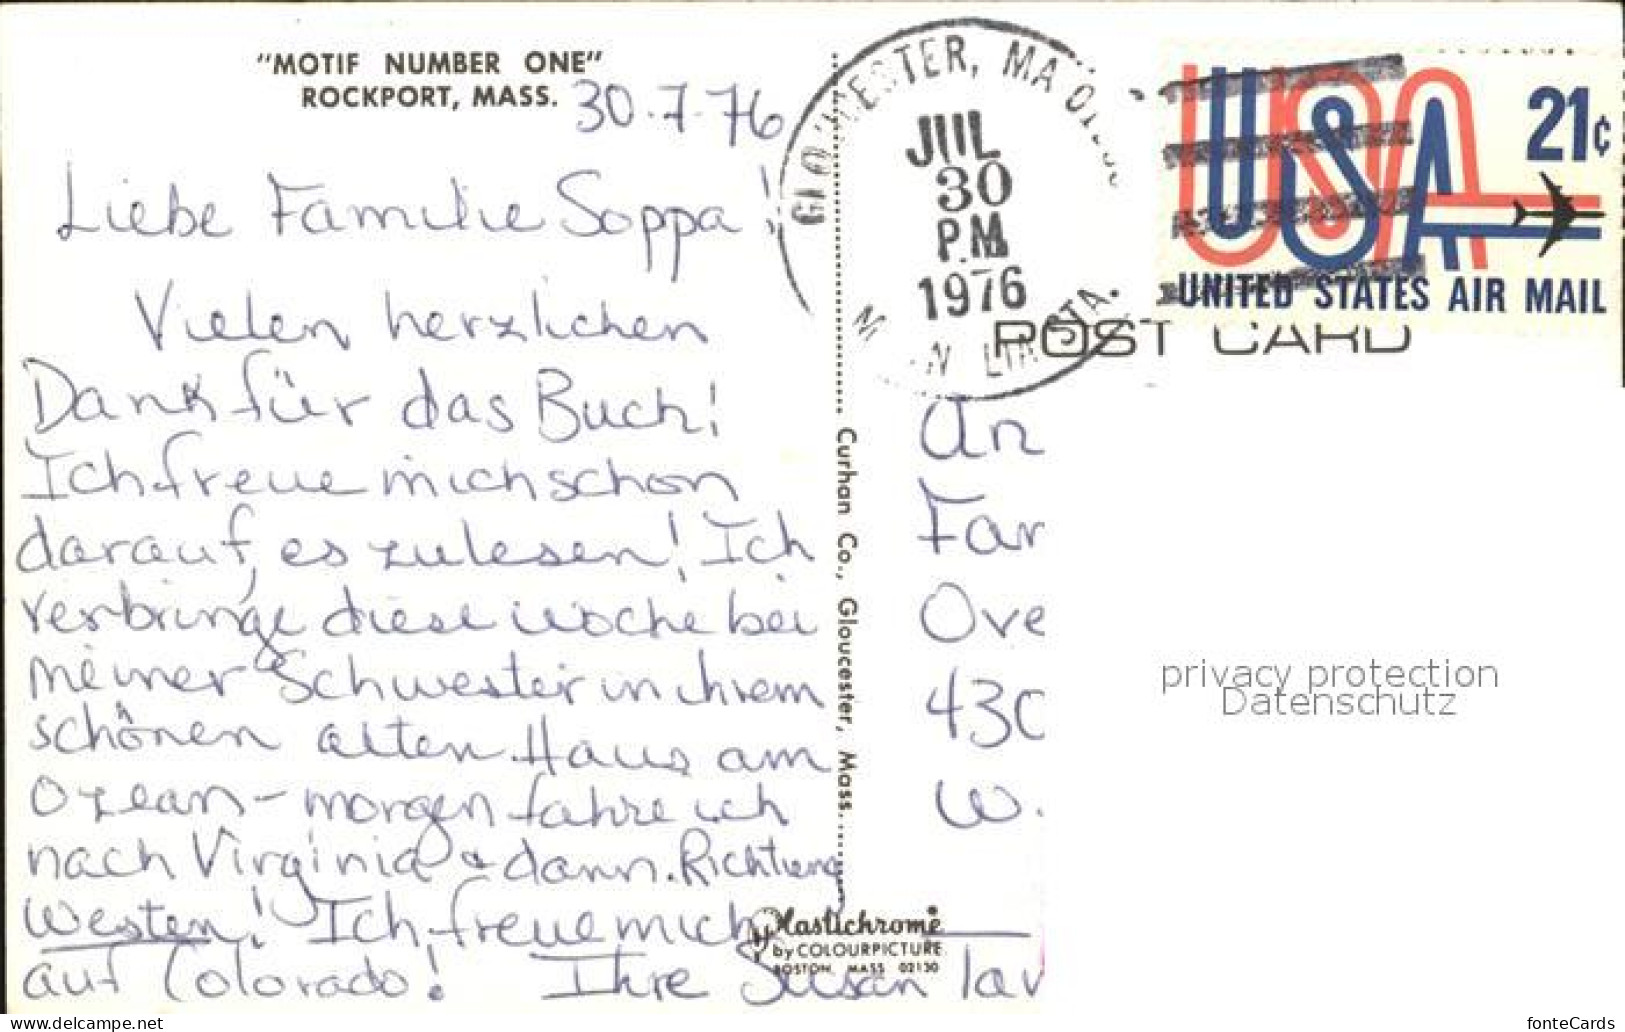 "MOTIF NUMBER ONE"
ROCKPORT, MASS.
30.7.76
Liebe Familie Soppa!
Vielen herzlichen
Dank für das Buch!
Ich freue mich schon
darauf, es zu lesen! Ich
verbringe diese Woche bei
meiner Schwester in ihrem
schönen alten Haus am
Ozean - morgen fahre ich
nach Virginia + dann Richtung
Westen! Ich freue mich
auf Colorado! Ihre Susan
Curhan Co., Gloucester, Mass.
Plastichrome
by COLOURPICTURE
BOSTON, MASS 02130
GLOUCESTER, MA
JUL
30
PM
1976
STA.
USA
21c
UNITED STATES AIR MAIL
POST CARD
An
Fam
Ove
430
W.
privacy protection
Datenschutz
https://www.delcampe.net
fonteCards